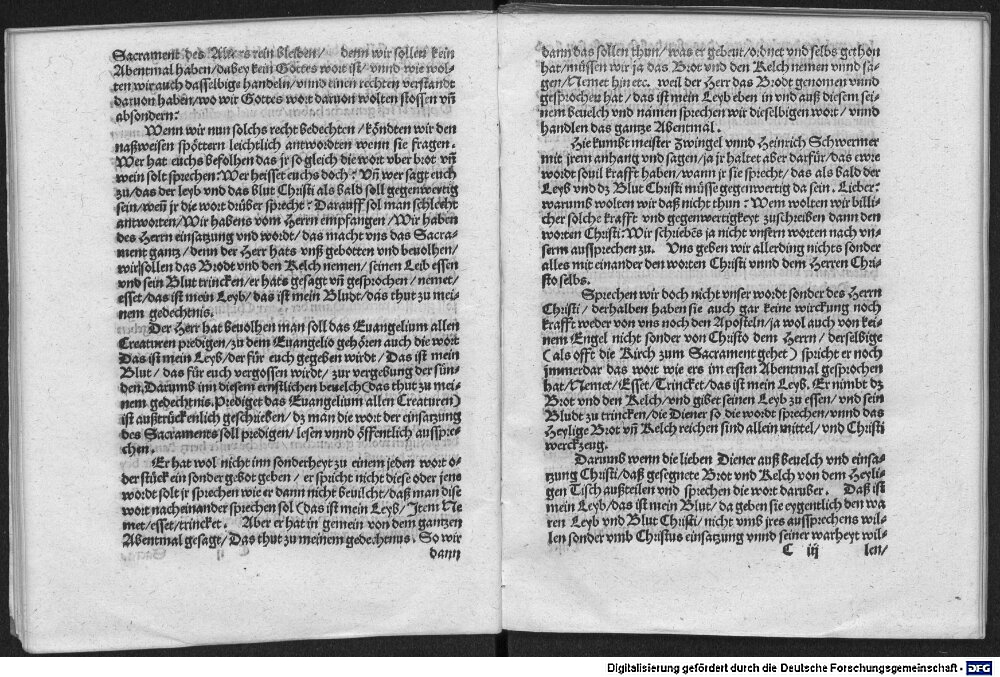 Sacrament des Altars rein bleiben/ denn wir sollen kein
Abentmal haben/dabey kein Gottes wort ist/ vnnd wie wol-
ten wir auch dasselbige handeln/vnnd einen rechten verstandt
daruon haben/wo wir Gottes wort daruon wolten stossen vñ
absondern:
Wenn wir nun solchs recht bedechten/köndten wir den
naßweisen spöttern leichtlich antwordten wenn sie fragen.
Wer hat euchs befolhen das jr so gleich die wort vber brot vñ
wein solt sprechen:Wer heisset euchs doch? Vñ wer sagt euch
zu/das der leyb vnd das blut Christi als bald soll gegenwertig
sein/weñ jr die wort drüber sprecht? Darauff sol man schlecht
antworten/Wir habens vom Herrn empfangen/Wir haben
des Herrn einsatzung vnd wordt/das macht vns das Sacra-
ment gantz/denn der Herr hats vnß gebotten vnd beuolhen/
wir sollen das Brodt vnd den Kelch nemen/seinen Leib essen
vnd sein Blut trincken/er hats gesagt vñ gesprochen/nemet/
esset/das ist mein Leyb/das ist mein Bludt/das thut zu mei-
nem gedechtnis.
Der Herr hat beuolhen man soll das Euangelium allen
Creaturen predigen/zu dem Euangelio gehören auch die wort
Das ist mein Leyb/der für euch gegeben wirdt/Das ist mein
Blut/das für euch vergossen wirdt/zur vergebung der sün-
den. Darumb inn diesem ernstlichen beuelch(das thut zu mei-
nem gedechtnis. Prediget das Euangelium allen Creaturen)
ist außtrückenlich geschrieben/dz man die wort der einsatzung
des Sacraments soll predigen/lesen vnnd öffentlich ausspre-
chen.
Er hat wol nicht inn sonderheyt zu einem jeden wort o-
der stück ein sonder gebot geben/er spricht nicht diese oder jene
wordt solt jr sprechen wie er dann nicht beuilcht/daß man dise
wort nacheinander sprechen sol(das ist mein Leyb/Item Ne-
met/esset/trincket. Aber er hat in gemein von dem gantzen
Abentmal gesagt/Das thut zu meinem gedechtnus. So wir
dann
dann das sollen thun/was er gebeut/ordnet vnd selbs gethon
hat/müssen wir ja das Brot vnd den Kelch nemen vnnd sa-
gen/Nemet hin etc. weil der Herr das Brodt genomen vnnd
gesprochen hat/das ist mein Leyb eben in vnd auß diesem sei-
nem beuelch vnd namen sprechen wir dieselbigen wort/vnnd
handlen das gantze Abentmal.
Hie kumbt meister Zwingel vnnd Heinrich Schwermer
mit jrem anhang vnd sagen/ja jr haltet aber darfür/das ewre
wordt souil krafft haben/wann jr sie sprecht/das als bald der
Leyb vnd dz Blut Christi müsse gegenwertig da sein. Lieber:
warumb wolten wir daß nicht thun? Wem wolten wir billi-
cher solche krafft vnd gegenwertigkeyt zuschreiben dann den
worten Christi:Wir schriebẽs ja nicht vnsern worten nach vn-
serm aussprechen zu. Vns geben wir allerding nichts sonder
alles mit einander den worten Christi vnnd dem Herren Chri-
sto selbs.
Sprechen wir doch nicht vnser wordt sonder des Herrn
Christi/derhalben haben sie auch gar keine wirckung noch
krafft weder von vns noch den Aposteln/ja wol auch von kei-
nem Engel nicht sonder von Christo dem Herrn/derselbige
(als offt die Kirch zum Sacrament gehet) spricht er noch
immerdar das wort wie ers im ersten Abentmal gesprochen
hat/Nemet/Esset/Trincket/das ist mein Leyb. Er nimbt dz
Brot vnd den Kelch/vnd gibet seinen Leyb zu essen/vnd sein
Bludt zu trincken/die Diener so die wordt sprechen/vnnd das
Heylige Brot vñ Kelch reichen sind allein mittel/vnd Christi
werckzeug.
Darumb wenn die lieben Diener auß beuelch vnd einsa-
tzung Christi/daß gesegnete Brot vnd Kelch von dem Heyli-
gen Tisch außteilen vnd sprechen die wort daruber. Daß ist
mein Leyb/das ist mein Blut/da geben sie eygentlich den wa
ren Leyb vnd Blut Christi/nicht vmb jres aussprechens wil-
len sonder vmb Christus einsatzung vnnd seiner warheyt wil-
C iij len/
Digitalisierung gefördert durch die Deutsche Forschungsgemeinschaft - DFG